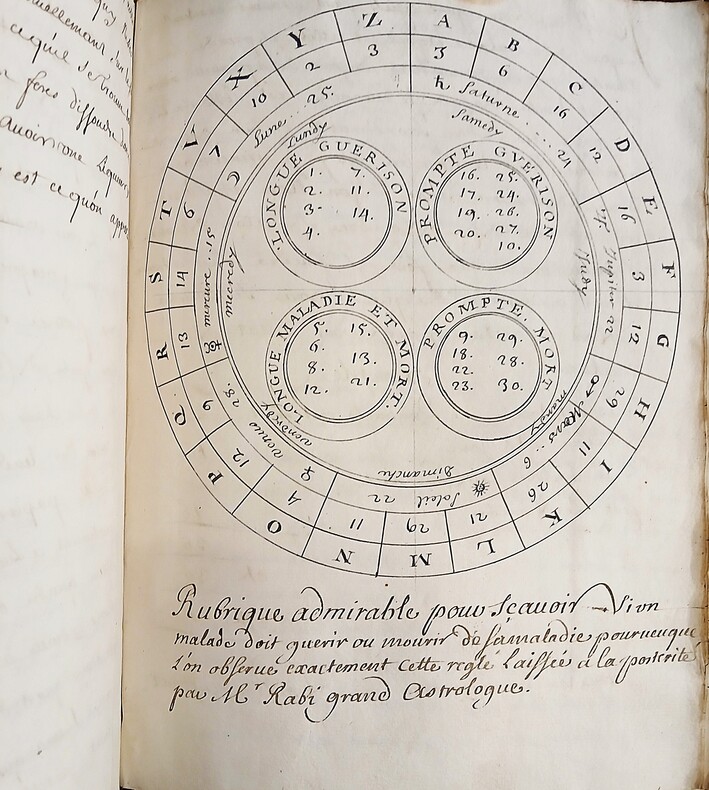 A B C D E F G H I K L M N O P Q R S T V X Y Z
3 6 16 12 16 3 12 29 11 26 21 29 11 4 12 9 13 14 6 7 10 2 3
♄ Saturne .... 24
Samedy
♃ Jupiter 22
Judy
♂ Mars .. 6
mardy
☀ Soleil 22
Dimanche
♀ venus 28.
vendredy
☿ mercure .. 15
mecredy
☽ Lune ... 25.
Lundy
LONGUE GUERISON
1. 7.
2. 11.
3. 14.
4.
PROMPTE GVERISON
16. 25.
17. 24.
19. 26.
20. 27.
10.
LONGUE MALADIE ET MORT.
5. 15.
6.
8. 13.
12. 21.
PROMPTE MORT
9. 29.
18. 28.
22.
23. 30.
Rubrique admirable pour Scavoir Si un
malade doit guerir ou mourir de sa maladie pourveuque
l'on observe exactement Cette regle Laissée a la posterité
par Mr Rabi grand Astrologue.